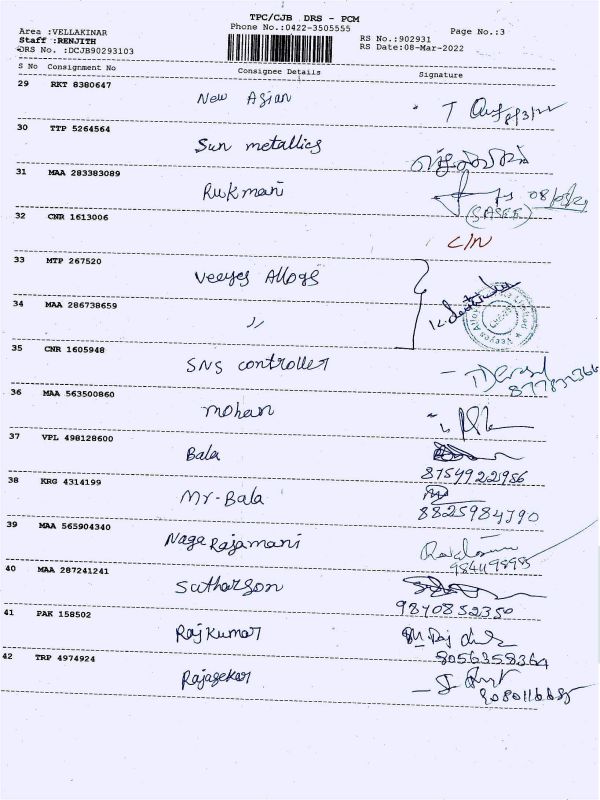 TPC/CJB DRS - PCM
Phone No.:0422-3505555
Area :VELLAKINAR
Staff :RENJITH
DRS No. :DCJB90293103
RS No.:902931
RS Date:08-Mar-2022
Page No.:3
S No Consignment No Consignee Details Signature
29 RKT 8380647 New Asian
30 TTP 5264564 Sun metallics
31 MAA 283383089 Rukmani
(SASEE)
32 CNR 1613006 C/N
33 MTP 267520 Veeyes Alloys
34 MAA 286738659 〃
35 CNR 1605948 SNS controller
36 MAA 563500860 mohan
37 VPL 498128600 Bala
8754922956
38 KRG 4314199 Mr-Bala
8825984790
39 MAA 565904340 Naga Rajamani
40 MAA 287241241 Satharson
9840852350
41 PAK 158502 Rajkumar
8056358364
42 TRP 4974924 Rajasekar